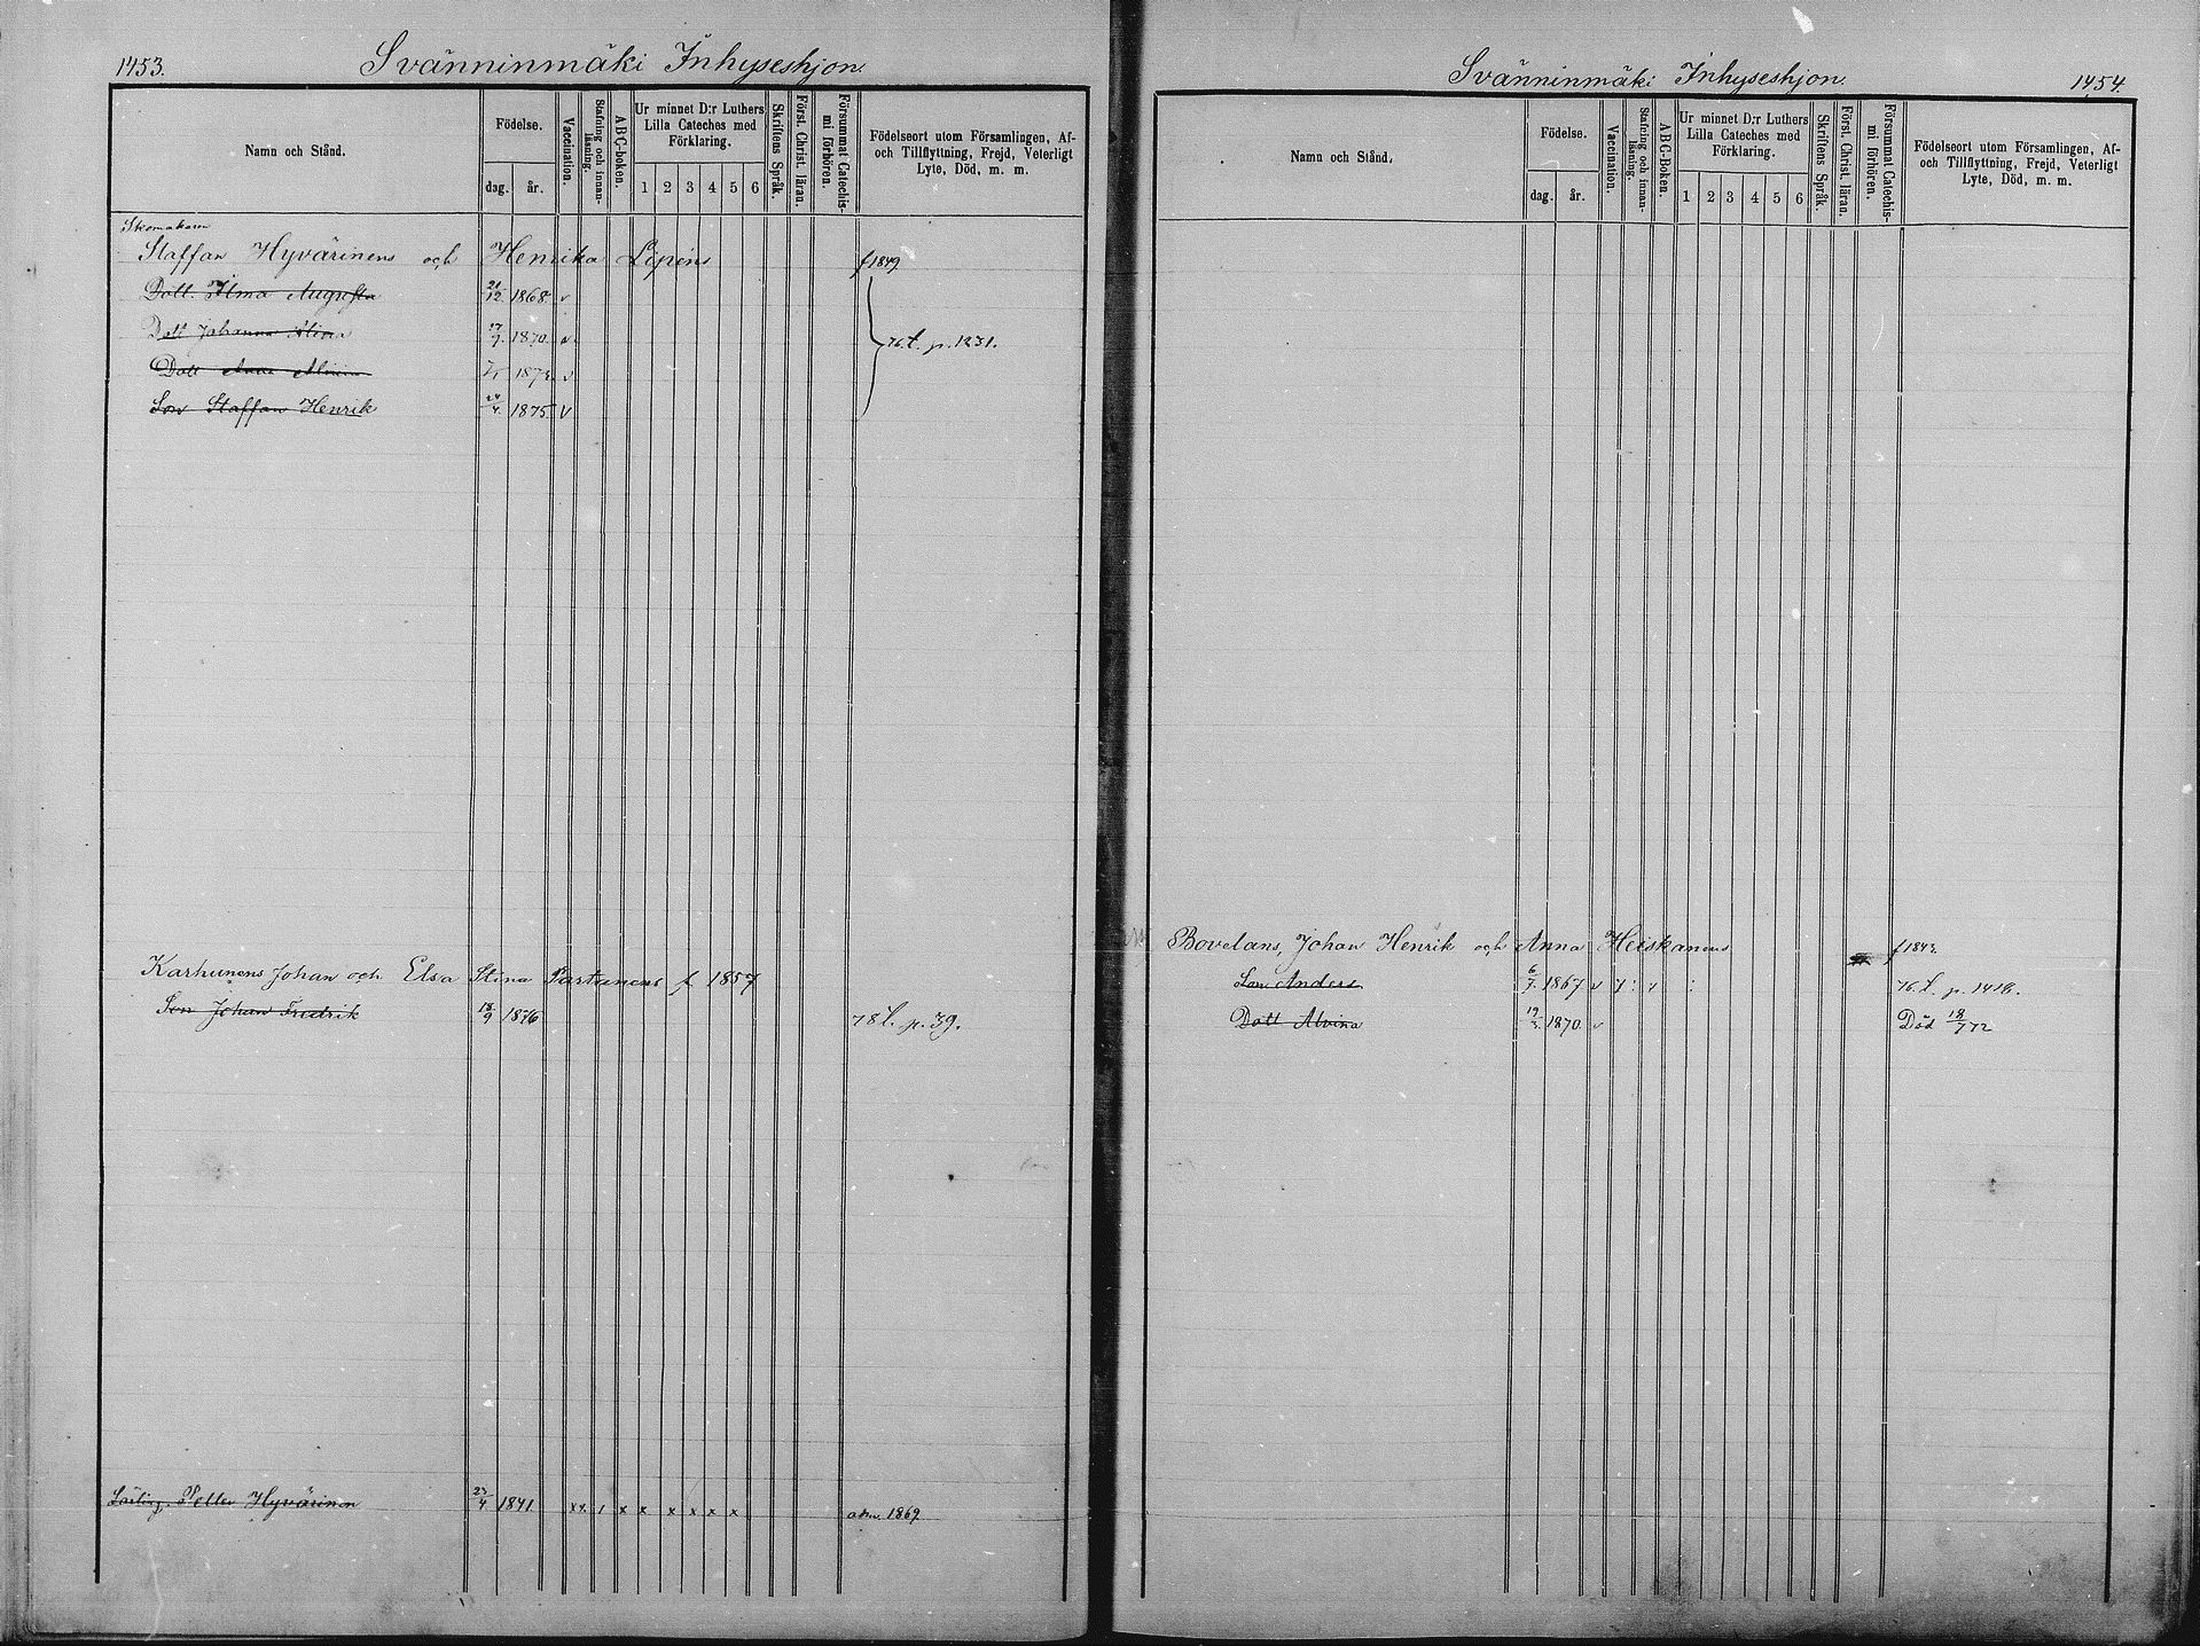 1453.
Svänninmäki Inhyseshjon.
Namn och Stånd.
Födelse.
dag.
år.
Vaccination.
Stafning och innanläsning.
ABC-boken.
Ur minnet D:r Luthers Lilla Cateches med Förklaring.
1 2 3 4 5 6
Skriftens Språk.
Först. Christ. läran.
Försummat Catechismi förhören.
Födelseort utom Församlingen, Af- och Tillflyttning, Frejd, Veterligt Lyte, Död, m. m.
Skomakaren
Staffan Hyvärinens och Henrika Lepins f 1849
Dott. Ilma Augusta 21/12 1868. v
Dott Johanna 17/9. 1870. v
76. t. p. 1231.
Dott Anna v
Son Staffan Henrik 24/4. 1875. V
Karhunens Johan och Elsa Stina Partanens f 1857
Son Johan Fredrik 18/9 1876
78 t. p. 39.
Lärling. Petter Hyvärinen 23/4 1841. xx 1 x x x x x x
adm. 1869
Svänninmäki Inhyseshjon.
1454.
Namn och Stånd.
Födelse.
dag.
år.
Vaccination.
Stafning och innanläsning.
ABC-Boken.
Ur minnet D:r Luthers Lilla Cateches med Förklaring.
1 2 3 4 5 6
Skriftens Språk.
Först. Christ. läran.
Försummat Catechismi förhören.
Födelseort utom Församlingen, Af- och Tillflyttning, Frejd, Veterligt Lyte, Död, m. m.
Bovelans, Johan Henrik och Anna Heiskanens
Son Anders 6/7. 1867 v
76. t. p. 1418.
Dott Alvina 19/3. 1870. v
Död 18/7 72